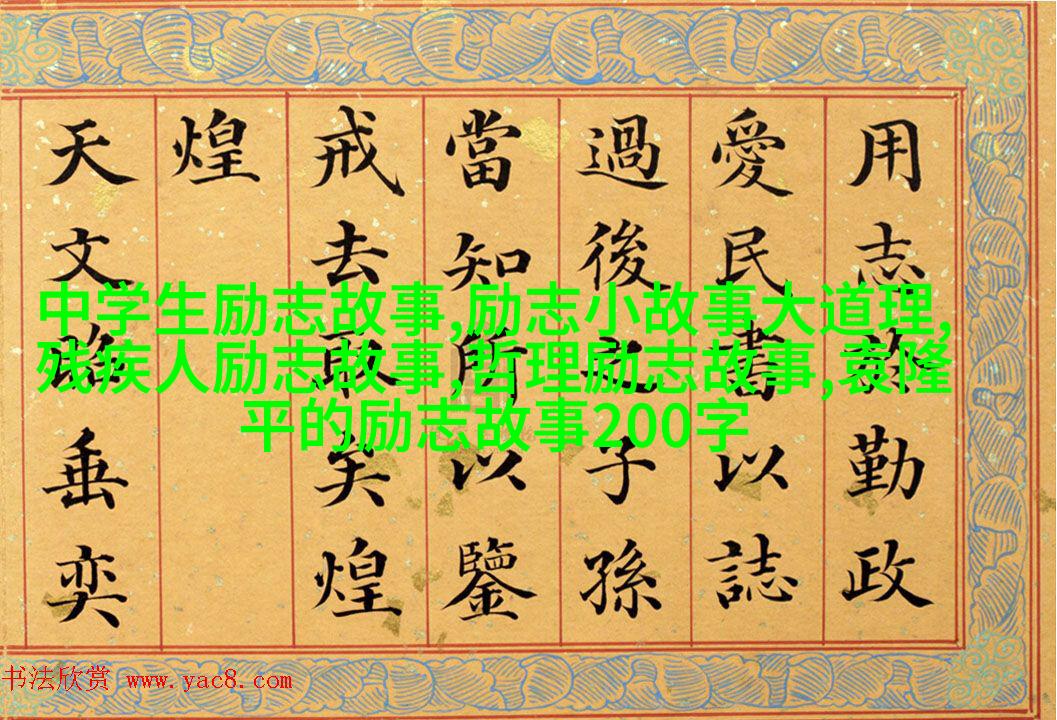 用志於勤政
愛民書以誌
過後之子孫
當知所以鑒
戒去取矣煌
煌
天文昭垂奕
中学生励志故事,励志小故事大道理,
残疾人励志故事,哲理励志故事,袁隆
平的励志故事200字
书法欣赏 www.yac8.com